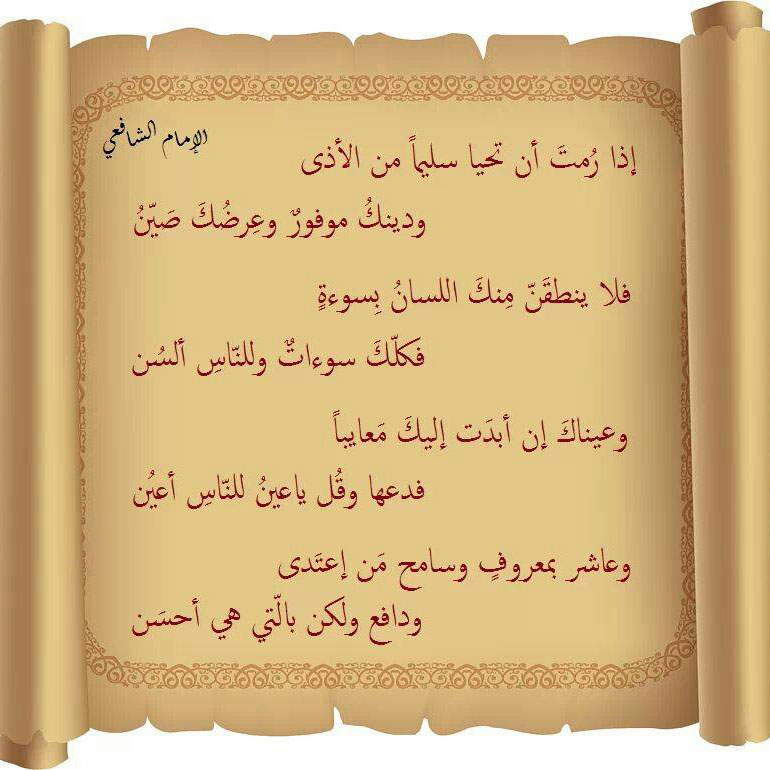 الإمام الشافعي
إذا رُمتَ أن تحيا سليماً من الأذى
ودينكُ موفورٌ وعِرضُكَ صَيّنُ
فلا ينطقَنّ مِنكَ اللسانُ بِسوءةٍ
فكلّكَ سوءاتٌ وللنّاسِ ألسُن
وعيناكَ إن أبدَت إليكَ مَعايباً
فدعها وقُل ياعينُ للنّاسِ أعيُن
وعاشر بمعروفٍ وسامح مَن إعتَدى
ودافع ولكن بالّتي هي أحسَن